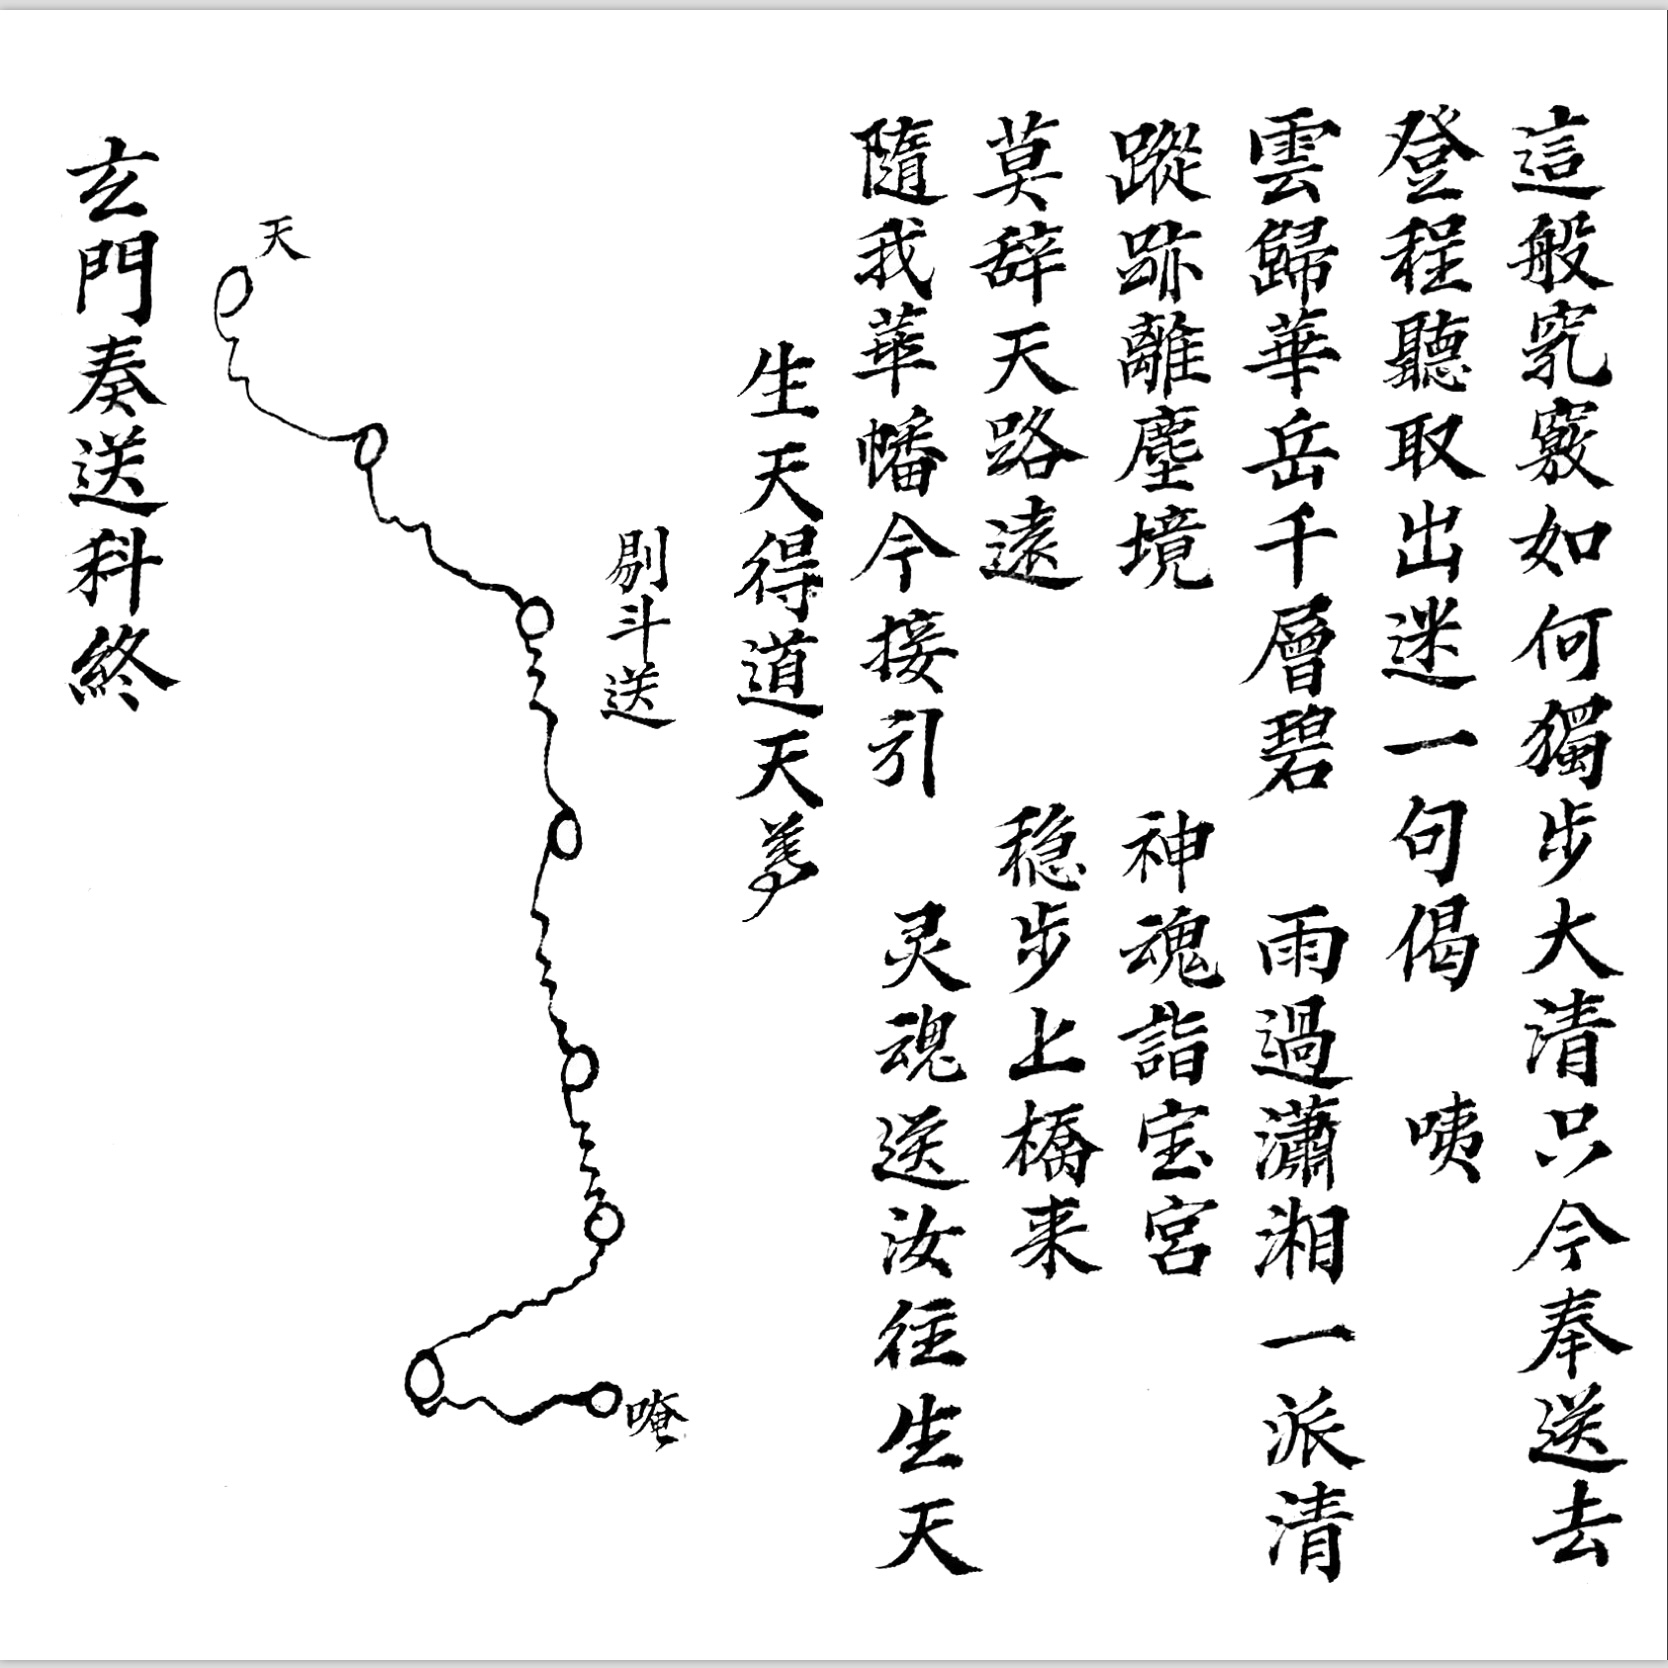 這般竅竅如何獨步大清只今奉送去
登程聽取出迷一句偈 咦
雲歸華岳千層碧 雨過瀟湘一派清
蹤跡離塵境 神魂詣宝宮
莫辞天路遠 穏步上橋来
隨我華幡今接引 灵魂送汝往生天
生天得道天尊
剔斗送
天
唵
玄門奏送科終